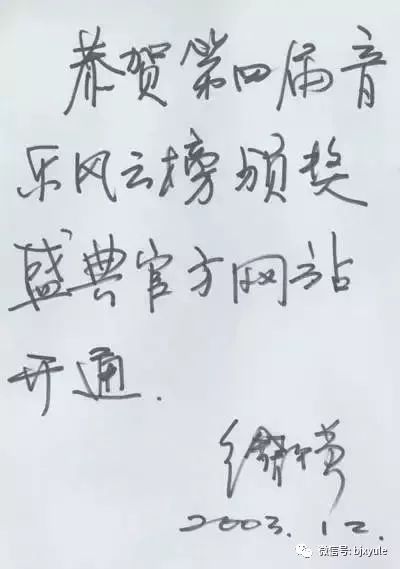 恭贺第四届音
乐风云榜颁奖
盛典官方网站
开通.
2003.12.
微信号: bjxyule